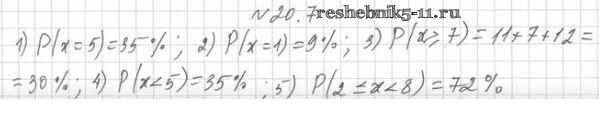 №20.7 reshebnik5-11.ru
1) P(x=5)=35%; 2) P(x=1)=9%; 3) P(x⩾7)=11+7+12=
=30%; 4) P(x<5)=35%; 5) P(2≤x<8)=72%